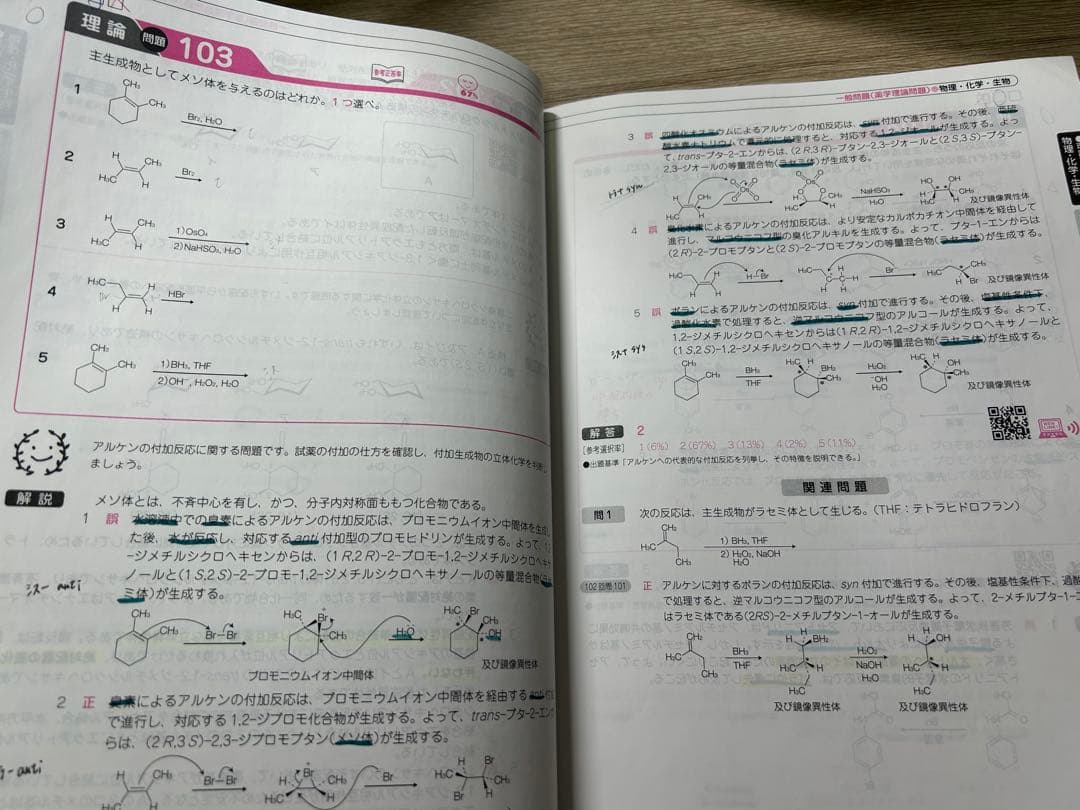 理論 問題 103
参考正答率
67%
主生成物としてメソ体を与えるのはどれか。1つ選べ。
1
CH₃
CH₃
Br₂, H₂O
2
H
CH₃
H₃C
H
Br₂
3
H
CH₃
H₃C
H
1)OsO₄
2)NaHSO₃, H₂O
4
H₃C
H
H
H
HBr
5
CH₃
CH₃
1)BH₃, THF
2)OH⁻, H₂O₂, H₂O
アルケンの付加反応に関する問題です。試薬の付加の仕方を確認し、付加生成物の立体化学を判断し
ましょう。
解説
メソ体とは、不斉中心を有し、かつ、分子内対称面ももつ化合物である。
1 誤 水溶液中での臭素によるアルケンの付加反応は、ブロモニウムイオン中間体を生成し
た後、水が反応し、対応するanti付加型のブロモヒドリンが生成する。よって、1,2
-ジメチルシクロヘキセンからは、(1R,2R)-2-ブロモ-1,2-ジメチルシクロヘキサ
ノールと(1S,2S)-2-ブロモ-1,2-ジメチルシクロヘキサノールの等量混合物(ラセ
ミ体)が生成する。
シスー anti
CH₃
CH₃
Br—Br
H₃C
Br
CH₃
H₂O
H₃C
Br
OH
CH₃
及び鏡像異性体
ブロモニウムイオン中間体
2 正 臭素によるアルケンの付加反応は、ブロモニウムイオン中間体を経由するanti付
で進行し、対応する1,2-ジブロモ化合物が生成する。よって、trans-ブタ-2-エンか
らは、(2R,3S)-2,3-ジブロモブタン(メソ体)が生成する。
-anti
H
CH₃
H₃C
H
Br—Br
Br
CH₃
H₃C
H
Br
H
Br
CH₃
H₃C
Br
H
一般問題(薬学理論問題) 物理・化学・生物
物理・化学・生物
3 誤 四酸化オスミウムによるアルケンの付加反応は、syn付加で進行する。その後、亜硫
酸水素ナトリウムで還元的に処理すると、対応する1,2-ジオールが生成する。よっ
て、trans-ブタ-2-エンからは、(2R,3R)-ブタン-2,3-ジオールと(2S,3S)-ブタン-
2,3-ジオールの等量混合物(ラセミ体)が生成する。
トランス syn
H
CH₃
H₃C
H
NaHSO₃
H₂O
HO
OH
及び鏡像異性体
4 誤 臭化水素によるアルケンの付加反応は、より安定なカルボカチオン中間体を経由して
進行し、マルコウニコフ型の臭化アルキルを生成する。よって、ブタ-1-エンからは
(2R)-2-ブロモブタンと(2S)-2-ブロモブタンの等量混合物(ラセミ体)が生成する。
H₃C
H
H
H
H—Br
Br⁻
H₃C
CH₃
H
Br
及び鏡像異性体
5 誤 ボランによるアルケンの付加反応は、syn付加で進行する。その後、塩基性条件下、
過酸化水素で処理すると、逆マルコウニコフ型のアルコールが生成する。よって、
1,2-ジメチルシクロヘキセンからは(1R,2R)-1,2-ジメチルシクロヘキサノールと
(1S,2S)-1,2-ジメチルシクロヘキサノールの等量混合物(ラセミ体)が生成する。
シス syn
CH₃
CH₃
BH₃
THF
H₃C
H
BH₂
CH₃
H₂O₂
⁻OH
H₂O
H₃C
H
OH
CH₃
及び鏡像異性体
解答 2
[参考選択率] 1(6%) 2(67%) 3(13%) 4(2%) 5(11%)
●出題基準「アルケンへの代表的な付加反応を列挙し、その特徴を説明できる。」
関連問題
問1 次の反応は、主生成物がラセミ体として生じる。(THF:テトラヒドロフラン)
CH₂
H₃C
CH₃
1) BH₃, THF
2) H₂O₂, NaOH
102回問101 正 アルケンに対するボランの付加反応は、syn付加で進行する。その後、塩基性条件下、過酸
で処理すると、逆マルコウニコフ型のアルコールが生成する。よって、2-メチルブタ-1-エ
はラセミ体である(2RS)-2-メチルブタン-1-オールが生成する。
CH₂
H₃C
CH₃
BH₃
THF
H
BH₂
H
H₃C
CH₃
及び鏡像異性体
H₂O₂
NaOH
H₂O
H
OH
H
H₃C
CH₃
及び鏡像異性体